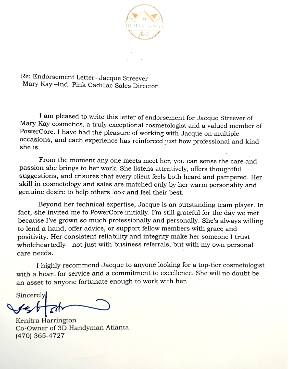 Re: Endorsement Letter - Jacque Streever
Mary Kay –Ind. Pink Cadillac Sales Director
I am pleased to write this letter of endorsement for Jacque Streever of
Mary Kay cosmetics, a truly exceptional cosmetologist and a valued member of
PowerCore. I have had the pleasure of working with Jacque on multiple
occasions, and each experience has reinforced just how professional and kind
she is.
From the moment any one meets meet her, you can sense the care and
passion she brings to her work. She listens attentively, offers thoughtful
suggestions, and ensures that every client feels both heard and pampered. Her
skill in cosmetology and sales are matched only by her warm personality and
genuine desire to help others look and feel their best.
Beyond her technical expertise, Jacque is an outstanding team player. In
fact, she invited me to PowerCore initially. I'm still grateful for the day we met
because I've grown so much professionally and personally. She's always willing
to lend a hand, offer advice, or support fellow members with grace and
positivity. Her consistent reliability and integrity make her someone I trust
wholeheartedly not just with business referrals, but with my own personal
care needs.
I highly recommend Jacque to anyone looking for a top-tier cosmetologist
with a heart for service and a commitment to excellence. She will no doubt be
an asset to anyone fortunate enough to work with her.
Sincerely,
Kenitra Harrington
Co-Owner of 3D Handyman Atlanta
(470) 365-4727